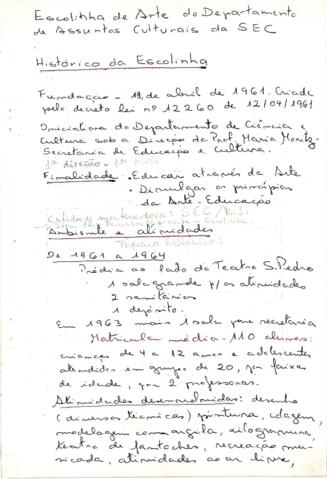 Escolinha de Arte do Departamento
de Assuntos Culturais da SEC
Histórico da Escolinha
Fundação - 12 de abril de 1961. Criada
pelo decreto lei nº 12260 de 12/04/1961
Iniciativa do Departamento de Ciência e
Cultura sob a Direção da Prof. Maria Moritz-
Secretaria de Educação e Cultura.
1ª direção -
Finalidade • Educar através da Arte
• Divulgar os princípios
da Arte-Educação
Entidade mantenedora: SEC/R.S.
Ambiente e atividades
De 1961 a 1964
Prédio ao lado do Teatro S. Pedro
1 sala grande p/os atividades
2 sanitários
1 depósito.
Em 1963 mais 1 sala para secretaria
Matrícula média: 110 alunos:
crianças de 4 a 12 anos e adolescentes
atendidos em grupo de 20, por faixas
de idade, por 2 professoras.
Atividades desenvolvidas: desenho
(diversas técnicas) pintura, colagem,
modelagem com argila, xilogravura,
teatro de fantoches, recreação mu-
sicada, atividades ao ar livre,